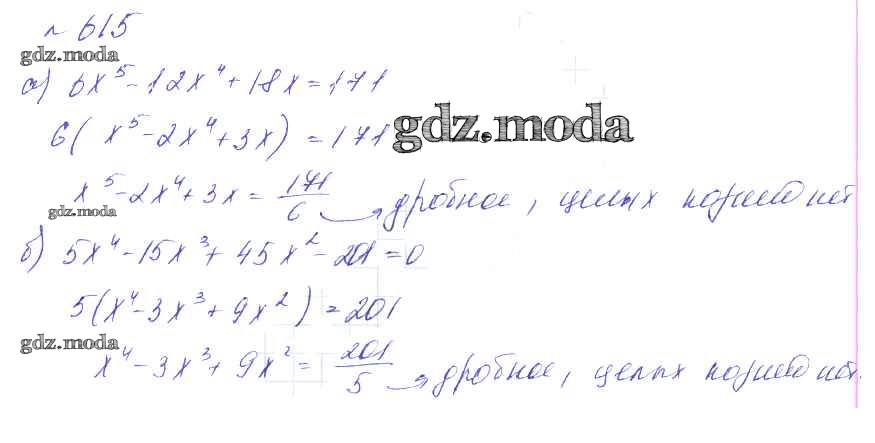 № 615
gdz.moda
а) 6x⁵ - 12x⁴ + 18x = 171
6(x⁵ - 2x⁴ + 3x) = 171
gdz.moda
x⁵ - 2x⁴ + 3x = 171/6 → дробное, целых корней нет
gdz.moda
б) 5x⁴ - 15x³ + 45x² - 201 = 0
5(x⁴ - 3x³ + 9x²) = 201
gdz.moda
x⁴ - 3x³ + 9x² = 201/5 → дробное, целых корней нет.